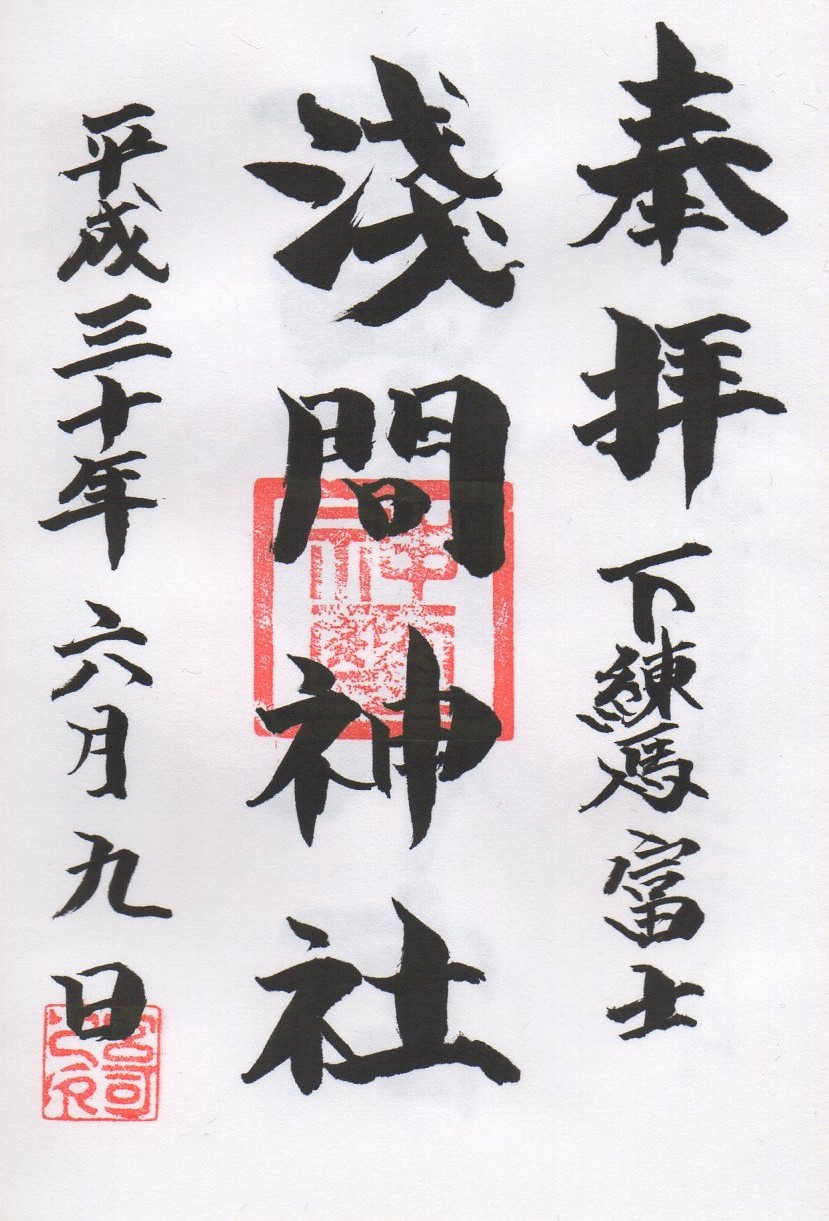 奉拝 下練馬富士
浅間神社
平成三十年六月九日
宮司之印